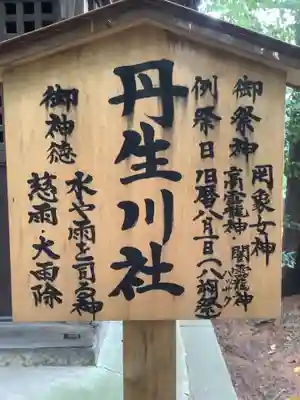 御祭神 罔象女神
高龗神・闇龗神
例祭日 旧暦八月一日(八朔祭)
ハッサク
丹生川社
御神徳 水や雨を司る神
慈雨・大雨除